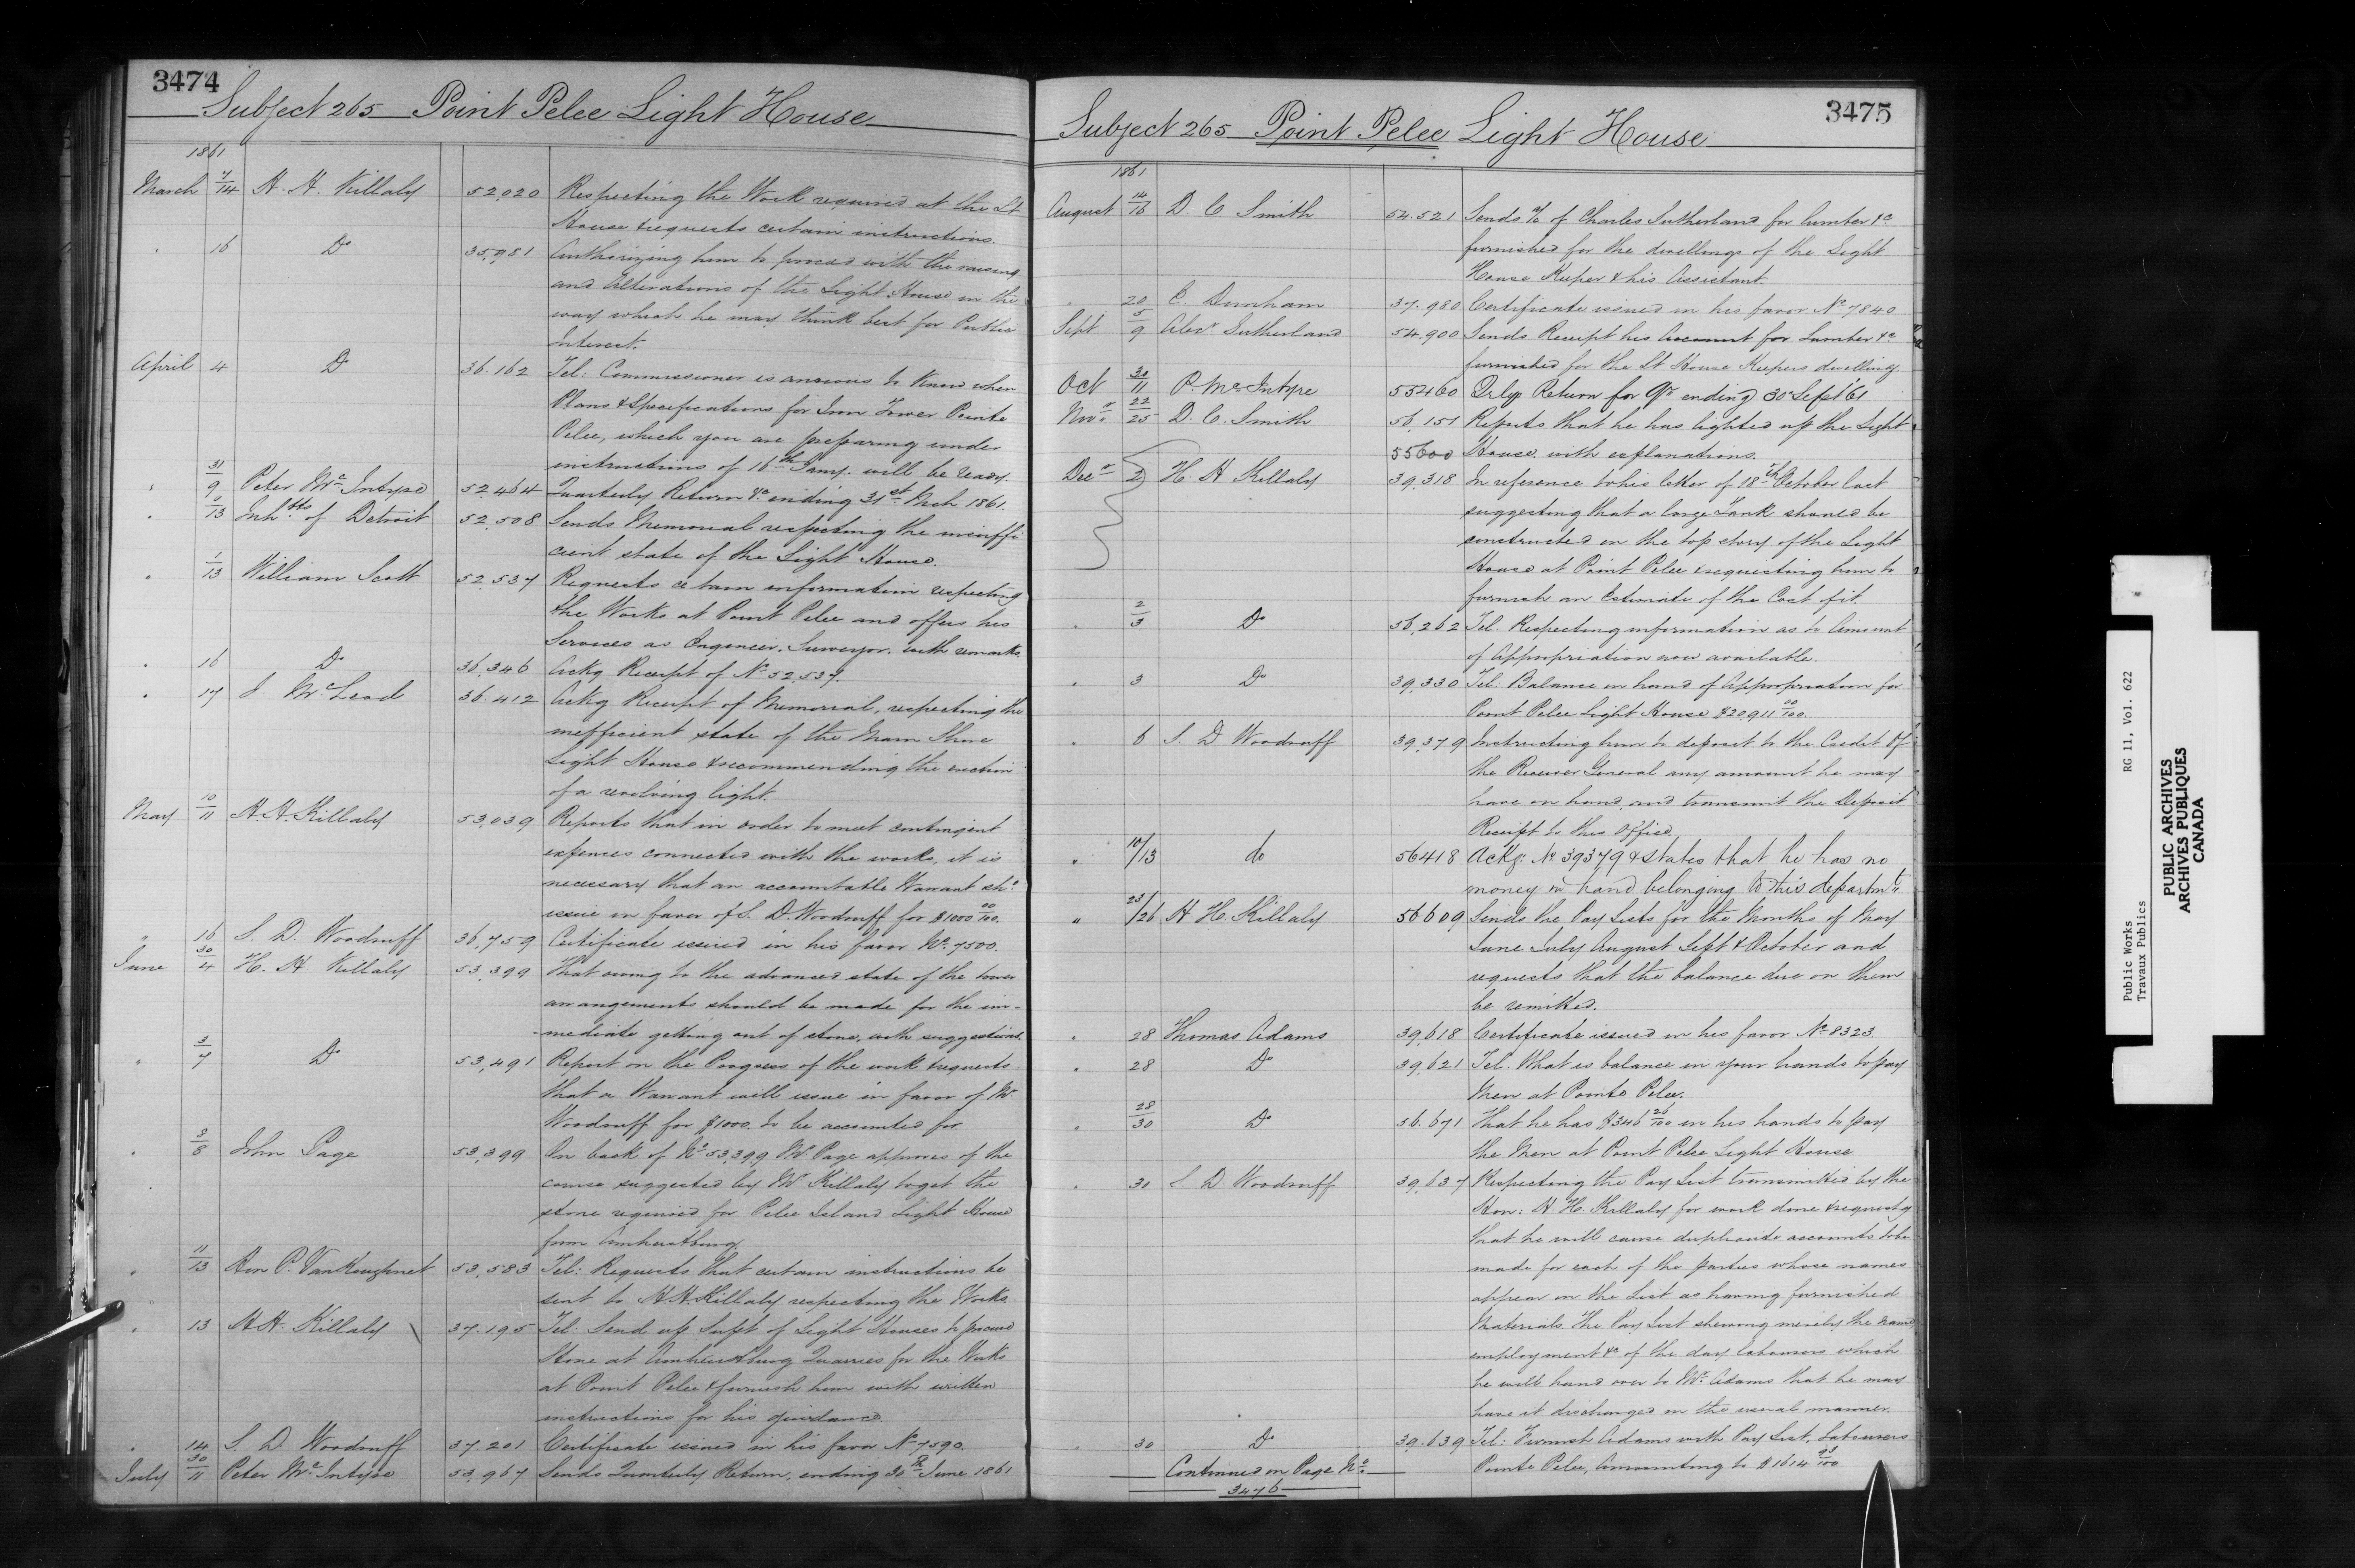 3474
Subject 265 Point Pelee Light House
1861
March 7/14 H. H. Killaly 52,020 Respecting the Work required at the Lt
House & requests certain instructions.
" 16 Do 35,981 Authorizing him to proceed with the raising
and Alterations of the Light House in the
way which he may think best for Public
Interest.
April 4 Do 36.162 Tel: Commissioner is anxious to know when
Plans & Specifications for Iron Tower Pointe
Pelee, which you are preparing under
instructions of 16th Jany. will be ready.
" 31/9 Peter McIntyre 52,464 Quarterly Return &c ending 31st Mch 1861.
" 13 Inhbts of Detroit 52,508 Sends Memorial respecting the ineffi
cient state of the Light House.
" 1/13 William Scott 52,537 Requests certain information respecting
the Works at Point Pelee and offers his
Services as Engineer. Surveyor. with remarks
" 16 Do 36,346 Ackg Receipt of No 52,537.
" 17 J McLeod 36.412 Ackg Receipt of Memorial, respecting the
inefficient state of the Main Shore
Light House & recommending the erection
of a revolving light.
May 10/11 H. H. Killaly 53,039 Reports that in order to meet contingent
expences connected with the works, it is
necessary that an accountable Warrant shd
issue in favor of S. D. Woodruff for $1000 00/100.
" 16 S. D. Woodruff 36,759 Certificate issued in his favor No. 7500.
June 30/4 H. H Killaly 53,399 That owing to the advanced state of the tower
arrangements should be made for the im-
-mediate getting out of stone, with suggestions.
" 3/7 Do 53,491 Report on the Progress of the work & requests
that a Warrant will issue in favor of Mr
Woodruff for $1000. to be accounted for
" 3/8 John Page 53,399 On back of No 53,399 Mr. Page approves of the
course suggested by Mr Killaly to get the
stone required for Pelee Island Light House
from Amherstburg.
" 11/13 Hon P. VanKoughnet 53,583 Tel: Requests that certain instructions be
sent to H. H. Killaly respecting the Works.
" 13 H H. Killaly 37.195 Tel. Send up Supt of Light Houses to procure
Stone at Amherstburg Quarries for the Works
at Point Pelee & furnish him with written
instructions for his guidance.
" 14 S. D. Woodruff 37,201 Certificate issued in his favor No 7590.
July 30/11 Peter McIntyre 53,967 Sends Quarterly Return, ending 30th June 1861
3475
Subject 265 Point Pelee Light House
1861
August 14/16 D C Smith 54.521 Sends a/c of Charles Sutherland for lumber &c
furnished for the dwellings of the Light
House Keeper & his Assistant.
" 20 C. Dunham 37.980 Certificate issued in his favor No 7840
Sept 5/9 Alexr Sutherland 54.900 Sends Receipt his Account for Lumber &c
furnished for the Lt House Keepers dwelling.
Oct 30/11 P. McIntyre 55460 Qrly Return for Qr ending 30 Sept '61
Novr 22/25 D. C. Smith 56,151 Reports that he has lighted up the Light
55600 House with explanations.
Decr 2 H H Killaly 39,318 In reference to his letter of 18th October last
suggesting that a large Tank should be
constructed in the top story of the Light
House at Point Pelee & requesting him to
furnish an Estimate of the Cost of it.
" 2/3 Do 56,262 Tel. Respecting information as to Amount
of Appropriation now available.
" 3 Do 39,330 Tel: Balance in hand of Appropriation for
Point Pelee Light House $20,911 00/100.
" 6 S. D Woodruff 39,379 Instructing him to deposit to the Credit of
the Receiver General any amount he may
have on hand, and transmit the Deposit
Receipt to this Office.
" 10/13 do 56418 Ackg: No 39379 & states that he has no
money in hand belonging to this departmt.
" 23/26 H H. Killaly 56609 Sends the Pay Lists for the Months of May
June July August Sept & October and
requests that the balance due on them
be remitted.
" 28 Thomas Adams 39,618 Certificate issued in his favor No 8323
" 28 Do 39,621 Tel. What is balance in your hands to pay
Men at Pointe Pelee.
" 28/30 Do 56.671 That he has $346 26/100 in his hands to pay
the Men at Point Pelee Light House.
" 30 S. D. Woodruff 39,637 Respecting the Pay List transmitted by the
Hon: H. H. Killaly for work done & requestg
that he will cause duplicate accounts to be
made for each of the parties whose names
appear on the List as having furnished
Materials. The Pay List shewing merely the name
employment &c of the day labourers which
he will hand over to Mr. Adams that he may
have it discharged in the usual manner.
" 30 Do 39.639 Tel: Furnish Adams with Pay List, Labourers
Pointe Pelee, Amounting to $1614 93/100
Continued on Page No.
3476
Public Works RG 11, Vol. 622
Travaux Publics
PUBLIC ARCHIVES
ARCHIVES PUBLIQUES
CANADA